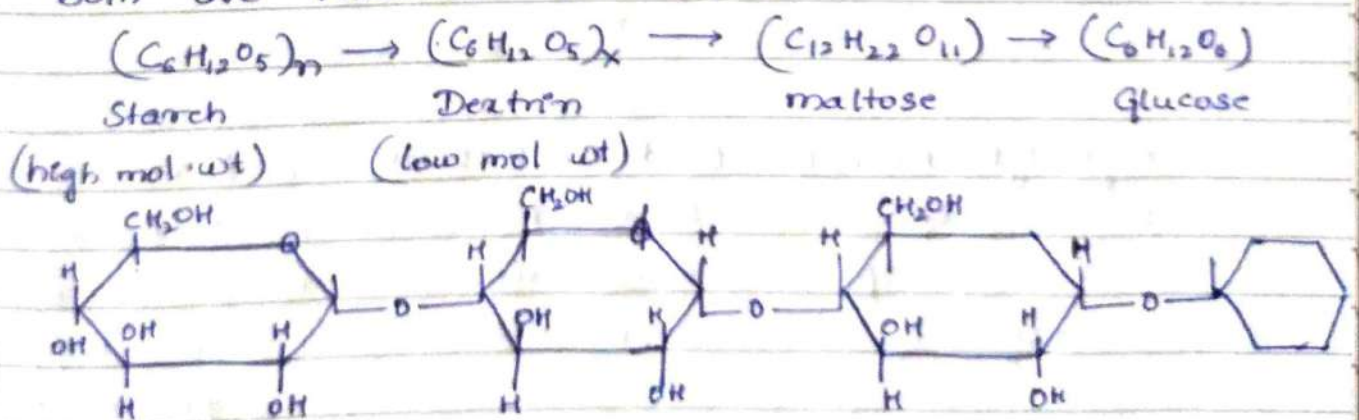 (C₆H₁₂O₅)n → (C₆H₁₂O₅)x → (C₁₂H₂₂O₁₁) → (C₆H₁₂O₆)
Starch Dextrin maltose Glucose
(high mol.wt) (low mol wt)
CH₂OH CH₂OH CH₂OH
H H H H H
O O O
OH OH H OH H OH H
H OH H OH H OH